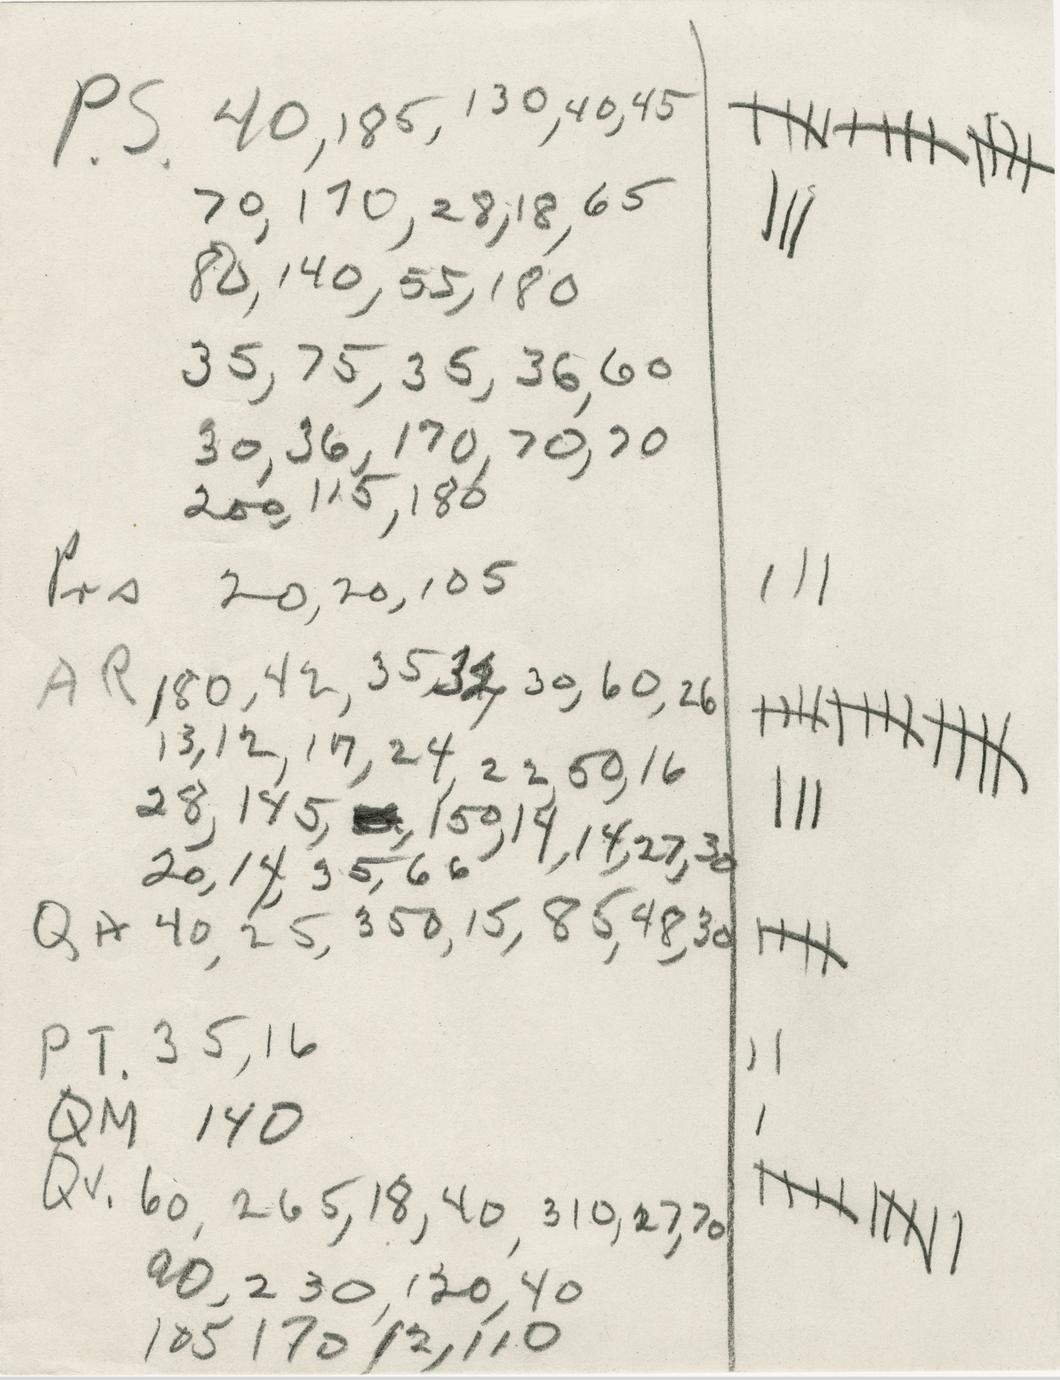 P.S. 40, 185, 130, 40, 45
70, 170, 28, 18, 65
80, 140, 55, 180
35, 75, 35, 36, 60
30, 36, 170, 70, 70
200, 115, 180
Prs 20, 20, 105
AR 180, 42, 35, 32, 30, 60, 26
13, 12, 17, 24, 22, 50, 16
28, 145, 150, 14, 14, 27, 30
20, 14, 35, 66
QA 40, 25, 350, 15, 85, 48, 30
PT. 35, 16
QM 140
QV. 60, 265, 18, 40, 310, 27, 70
90, 230, 120, 40
105 170 12, 110